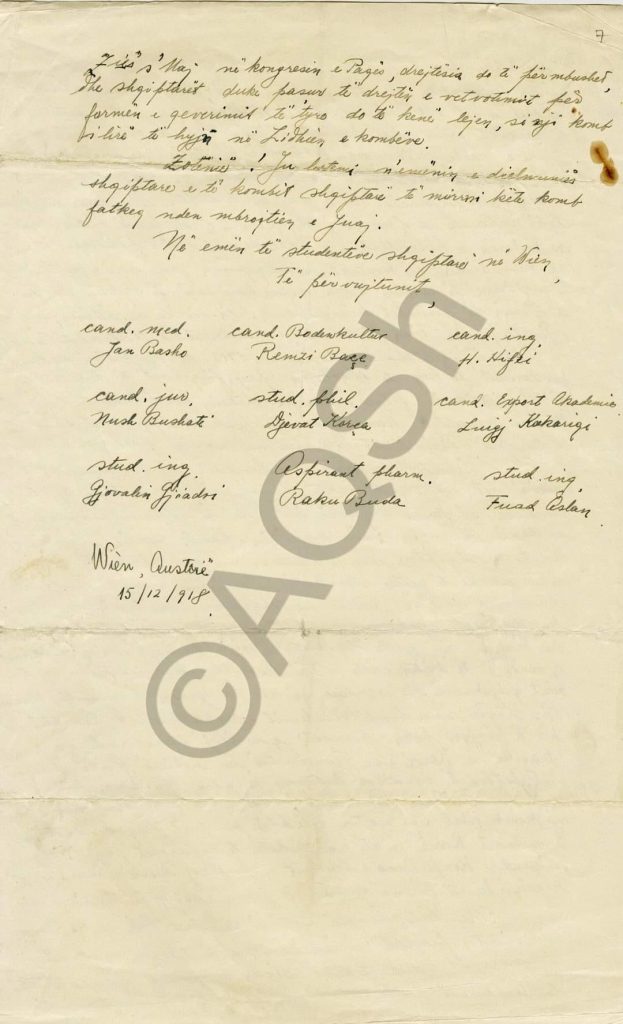 7
s' Maj në kongresin e Pages, drejtësia do të përmbushet,
dhe shqiptarët duke pasur të drejtën e vetvotimit për
formën e geverimit të tyre do të kenë lejen, si nji komb
i lirë të hyjn në Lidhien e kombëve.
Zotënië! Ju lutemi n'emënin e dielmënisë
shqiptare e të kombit shqiptarë të mirrni këte komb
fatkeq nden mbrojtien e Juaj.
Në emën të studentëve shqiptarë në Wien,
Të për vujtunit,
cand. med. cand. Bodenkultur cand. ing.
Jan Basho Remzi Baçe H.
cand. jur. stud. phil. cand. Export Akademie
Nush Bushati Djevat Korça Luigj Kakarigi
stud. ing. Aspirant pharm. stud. ing.
Gjovalin Gjoadri Raku Buda Fuad Aslan
Wien, Austrië
15/12/918.
©AQSh